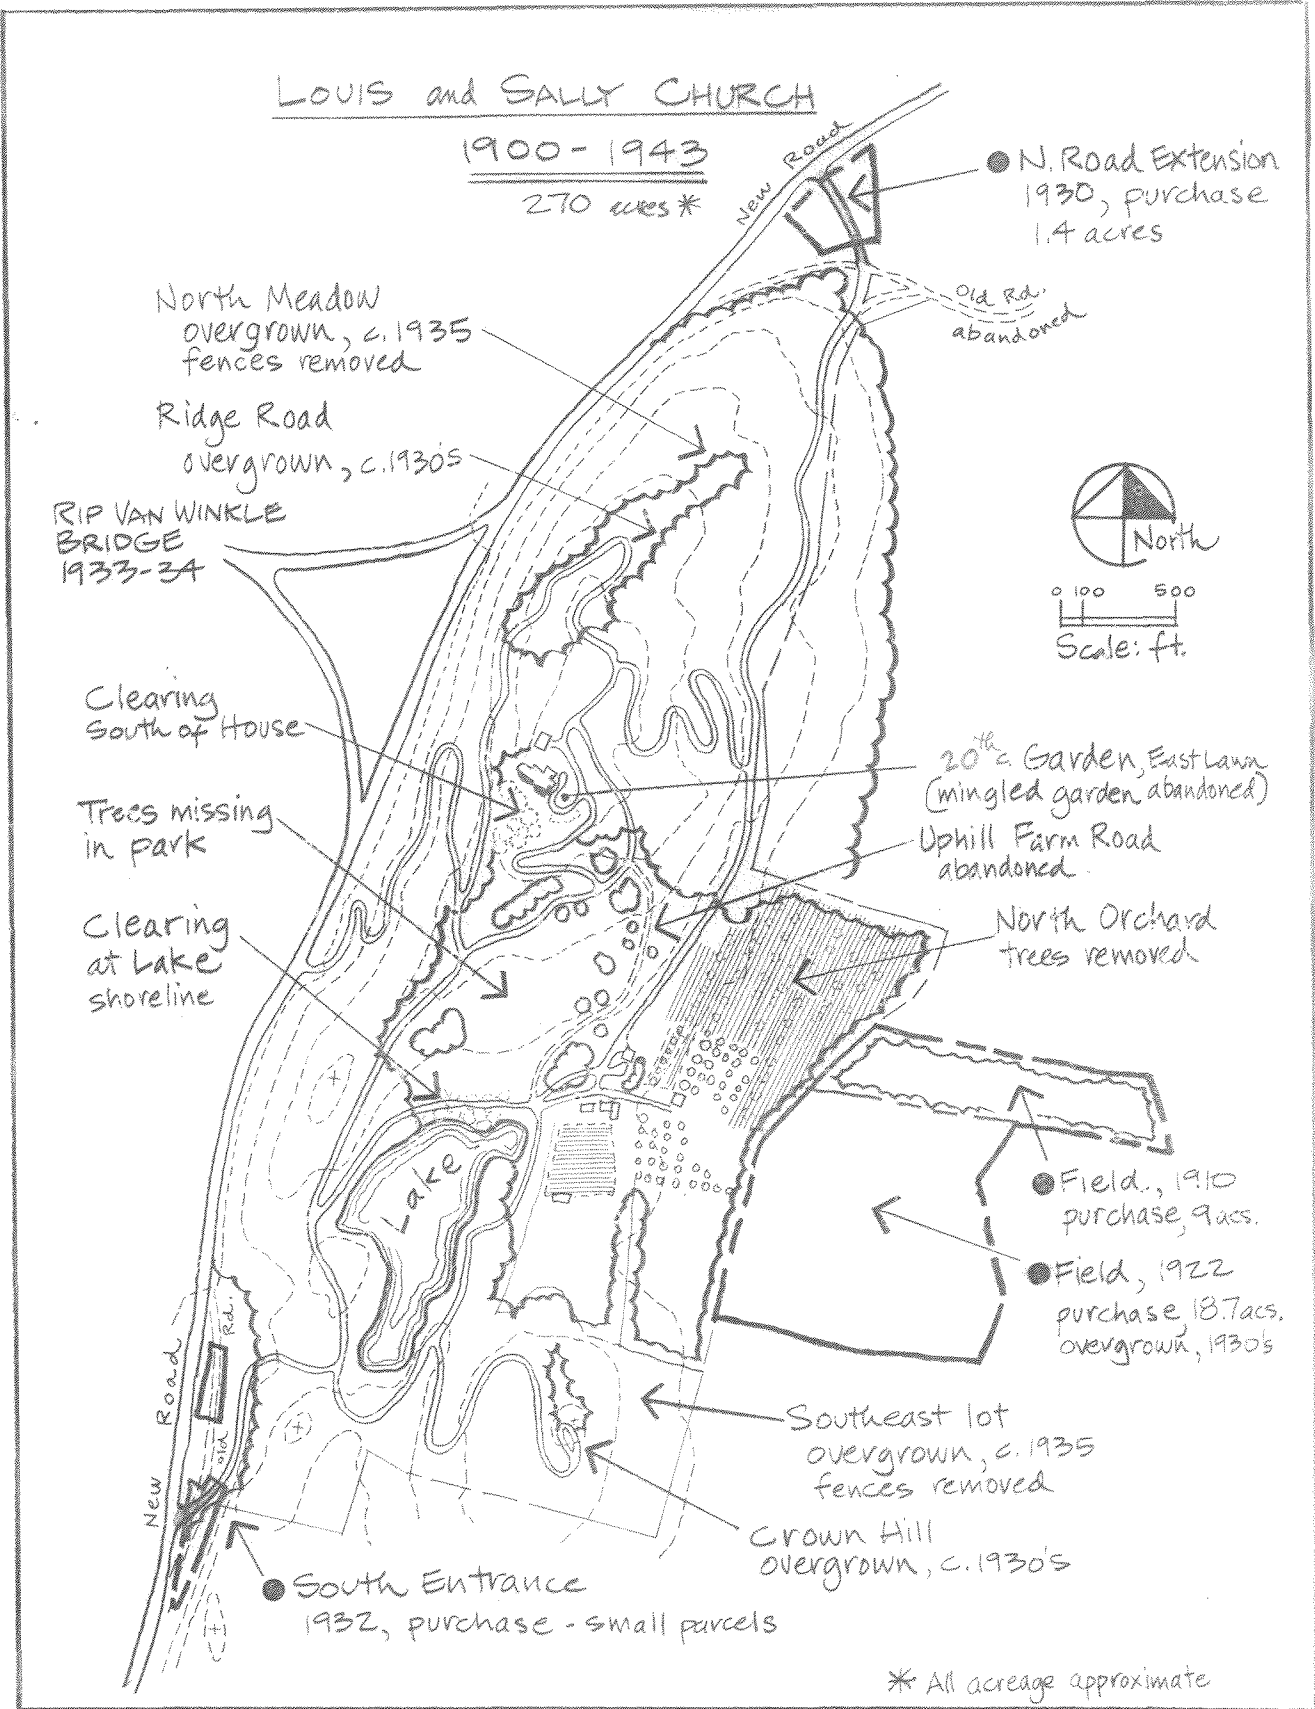 LOUIS and SALLY CHURCH
1900 - 1943
270 acres *
New Road
N. Road Extension
1930, purchase
1.4 acres
Old Rd.
abandoned
North Meadow
overgrown, c.1935
fences removed
Ridge Road
overgrown, c.1930's
RIP VAN WINKLE
BRIDGE
1933-34
North
0 100 500
Scale: ft.
Clearing
South of House
20th c. Garden, East Lawn
(mingled garden abandoned)
Trees missing
in park
Uphill Farm Road
abandoned
Clearing
at Lake
shoreline
North Orchard
trees removed
Lake
Field, 1910
purchase, 9 acs.
Field, 1922
purchase, 18.7 acs.
overgrown, 1930's
New Road
Old Rd.
Southeast lot
overgrown, c. 1935
fences removed
Crown Hill
overgrown, c. 1930's
South Entrance
1932, purchase - small parcels
* All acreage approximate